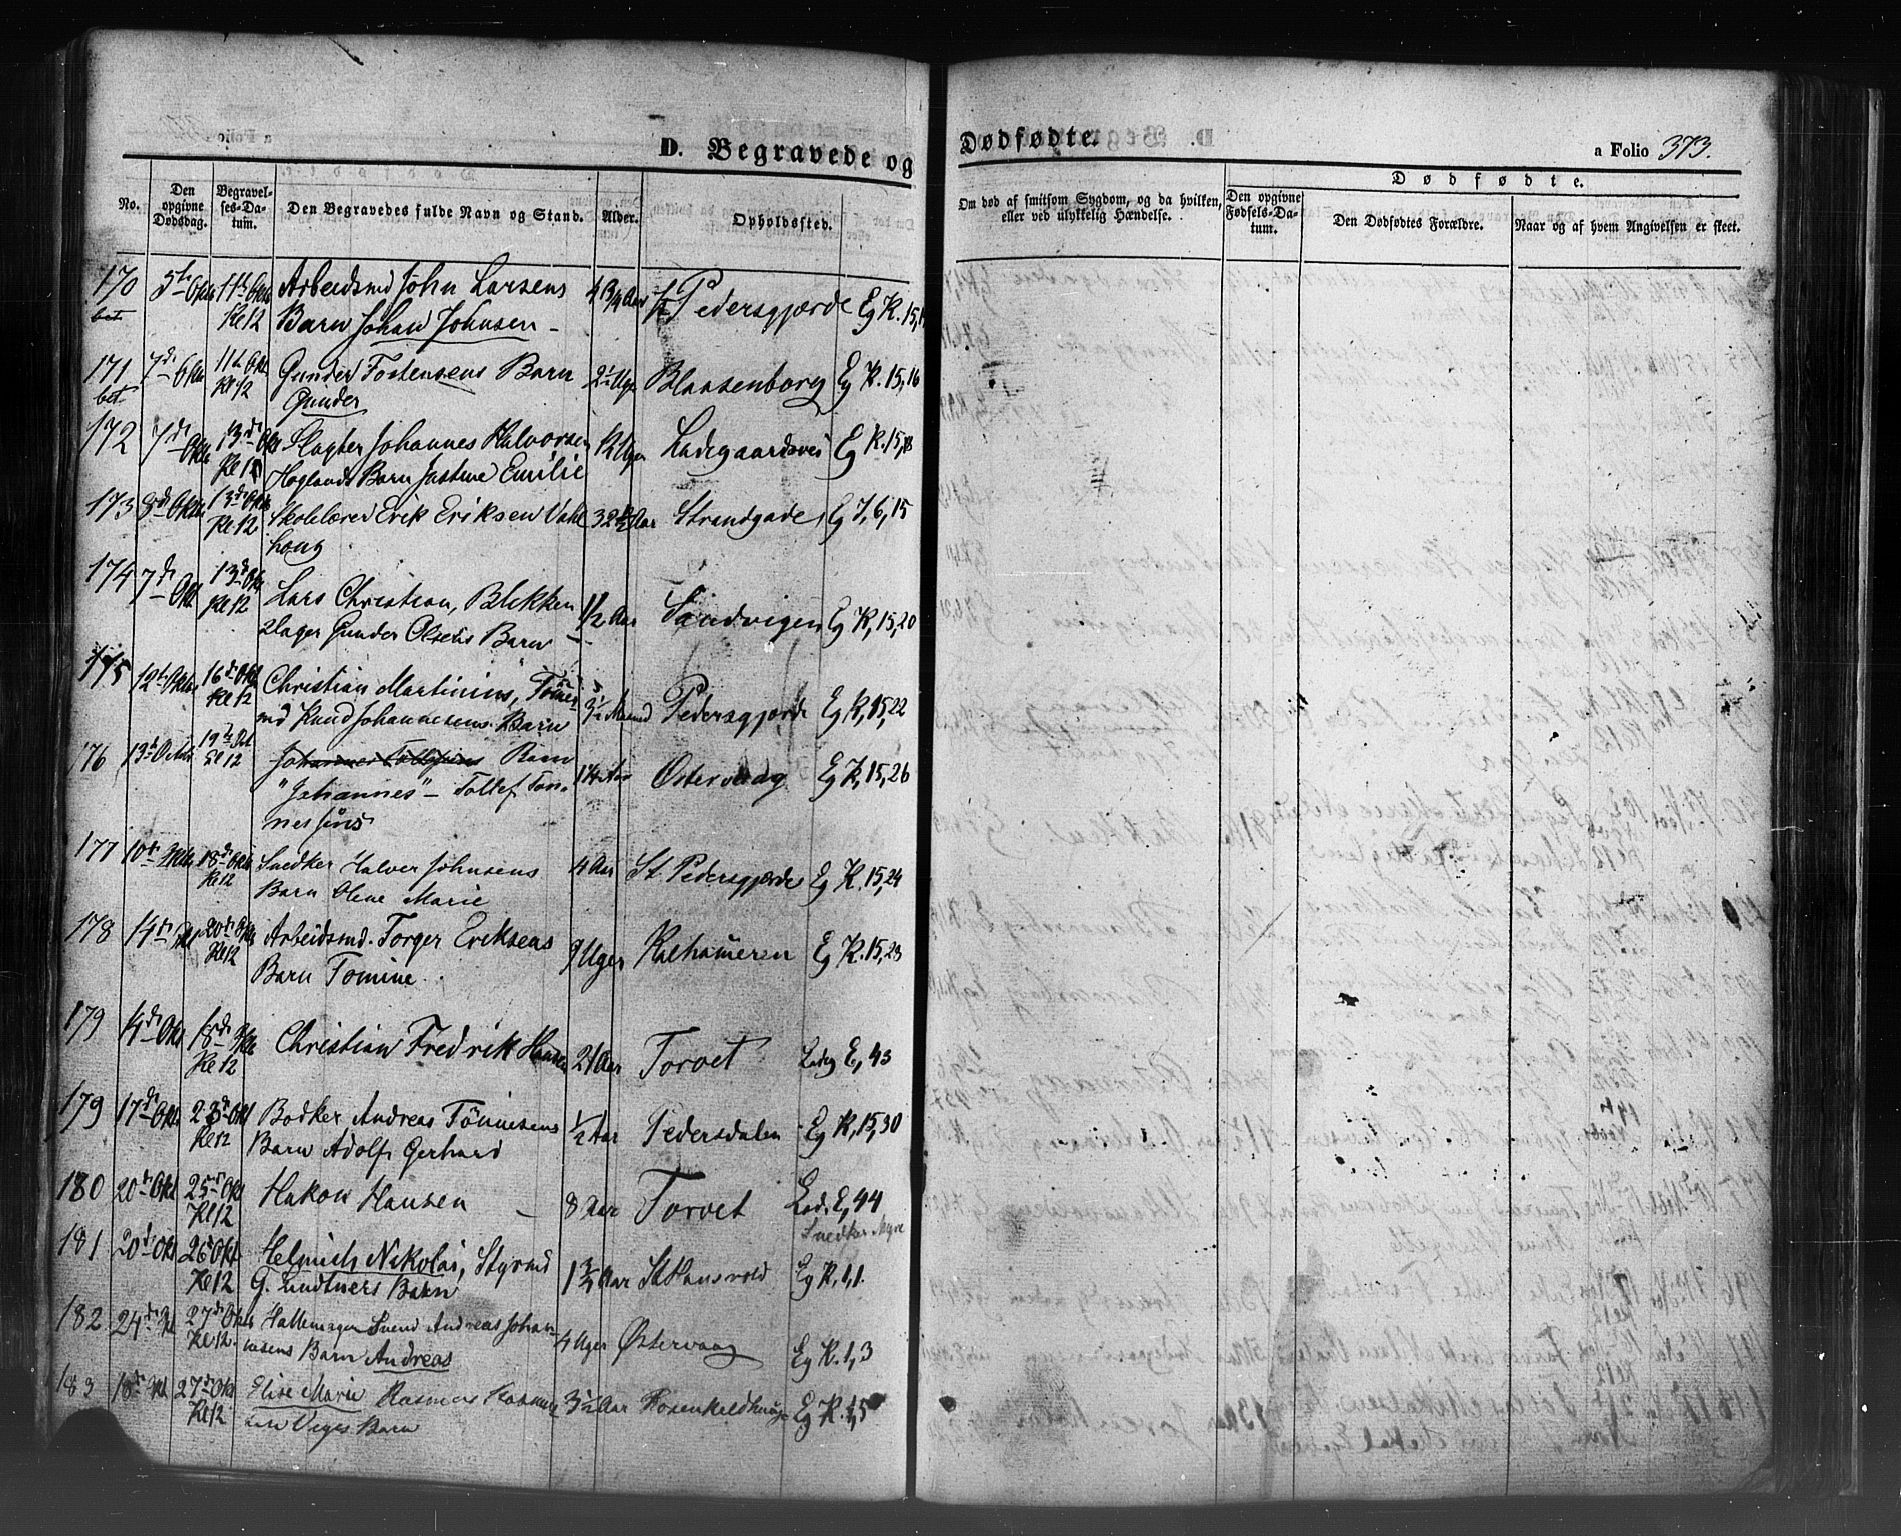 D. Begravede og Dødfødte.
a Folio 373.
No.
Den opgivne Dødsdag.
Begravelses-Datum.
Den Begravedes fulde Navn og Stand.
Alder.
Opholdssted.
Om død af smitsom Sygdom, og da hvilken, eller ved ulykkelig Hændelse.
Dødfødte.
Den opgivne Fødsels-Datum.
Den Dødfødtes Forældre.
Naar og af hvem Angivelsen er skeet.
170 5te Okt 11te Okt Arbeidsmd John Larsens Pedersgjærde Eg K. 15,
bet. Kl 12 Barn Johan Johnsen
171 7de Okt 11te Okt Gunder Torstensens Barn 2½ Uge Blaasenborg Eg K. 15,16
bet Kl 12 Gunder
172 7de Okt 13de Okt Slagter Johannes Halvorsen Uger Ladegaardsvei Eg K. 15,18
Høglands Barn Justine Emilie
173 8de Okt 13de Okt Skolelærer Erik Eriksen Vahl 32½ Aar Strandgade Eg 7,6,15
Kl 12 houg
174 7de Okt 13de Okt Lars Christian, Blikken 1½ Aar Sandvigen Eg K, 15,20
Kl 12 slager Gunder Olsens Barn
175 12te Okt 16de Okt Christian Martinius, Tønne Pedersgjærde Eg K, 15,22
Kl 12 md Knud Johannesens Barn
176 13de Octbr 19de Oct Barn 1¼ Aar Østervaag Eg K, 15,26
Kl 12 "Johannes" Tollef Tøn-
nessøns
177 10de Okt 18de Okt Snedker Halver Johnsens 4 Aar St. Pedersgjærde Eg K. 15,24
Kl 12 Barn Olene Marie
178 14de Okt 20de Okt Arbeidsmd. Torger Eriksens 9 Uger Kalhameren Eg K. 15,23
Kl 12 Barn Tomine
179 14de Okt 18de Okt Christian Fredrik Hansen 21 Aar Torvet Ladeg E, 43
Kl 12
179 17de Okt 23de Okt Bødker Andreas Tönnesens ½ Aar Pedersdalen Eg K, 15,30
Kl 12 Barn Adolf Gerhard
180 20de Okt 25de Okt Hakon Hansen 8 Aar Torvet Lad. E, 44
Kl 12 Snedker Myre
181 20de Okt 26 Okt Helmich Nikolai, Styrmd Aar St Hansvold Eg K. 1,1.
Kl 12 G. Lindtners Barn
182 24de Okt 27de Okt Hattemager Svend Andreas Johan- 4 Uger Østervaag Eg K. 1,3
Kl 12. nesens Barn Andreas
183 18de Okt 27de Okt Elise Marie Rasmus 3½ Aar Eg K. 1,5
Kl 12 Viges Barn